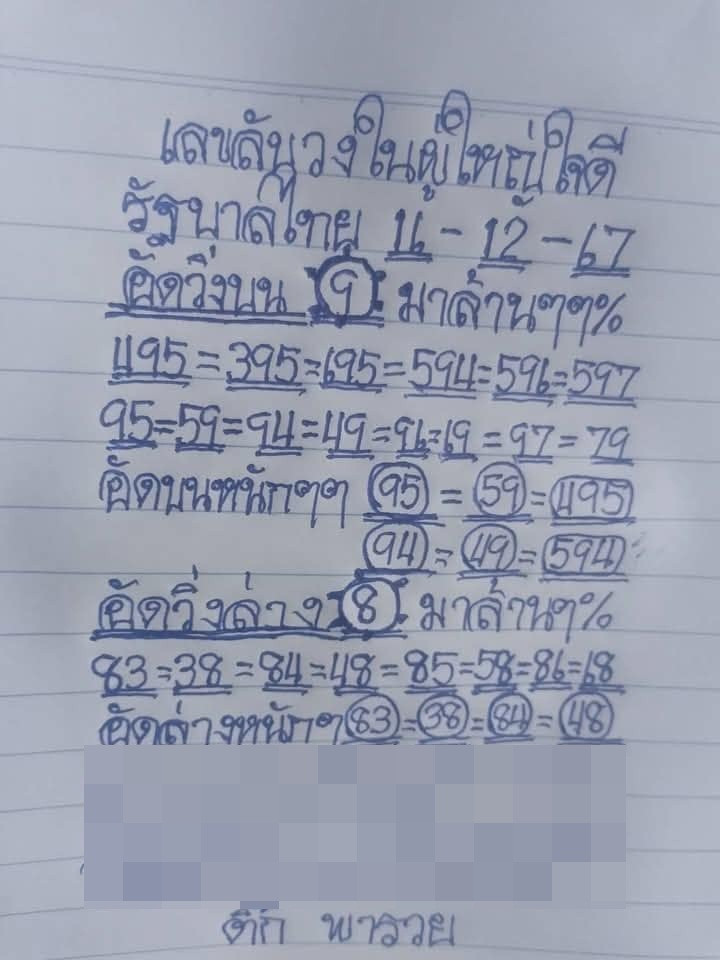 เลขลับวงในผู้ใหญ่ใจดี
รัฐบาลไทย 16 - 12 - 67
อัดวิ่งบน 9 มาล้านๆๆ%
495 = 395 = 695 = 594 = 596 = 597
95 = 59 = 94 = 49 = 96 = 69 = 97 = 79
อัดบนหนักๆๆ 95 = 59 = 495
94 = 49 = 594
อัดวิ่งล่าง 8 มาล้านๆ%
83 = 38 = 84 = 48 = 85 = 58 = 86 = 68
อัดล่างหนักๆ 83 = 38 = 84 = 48
ติ๊ก พารวย